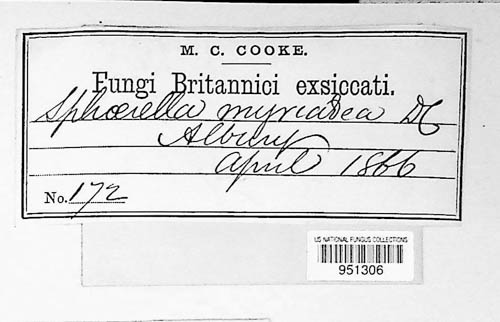 M. C. COOKE.
Fungi Britannici exsiccati.
Sphærella myriadea DC
Albury
April 1866
No. 172
US NATIONAL FUNGUS COLLECTIONS
951306